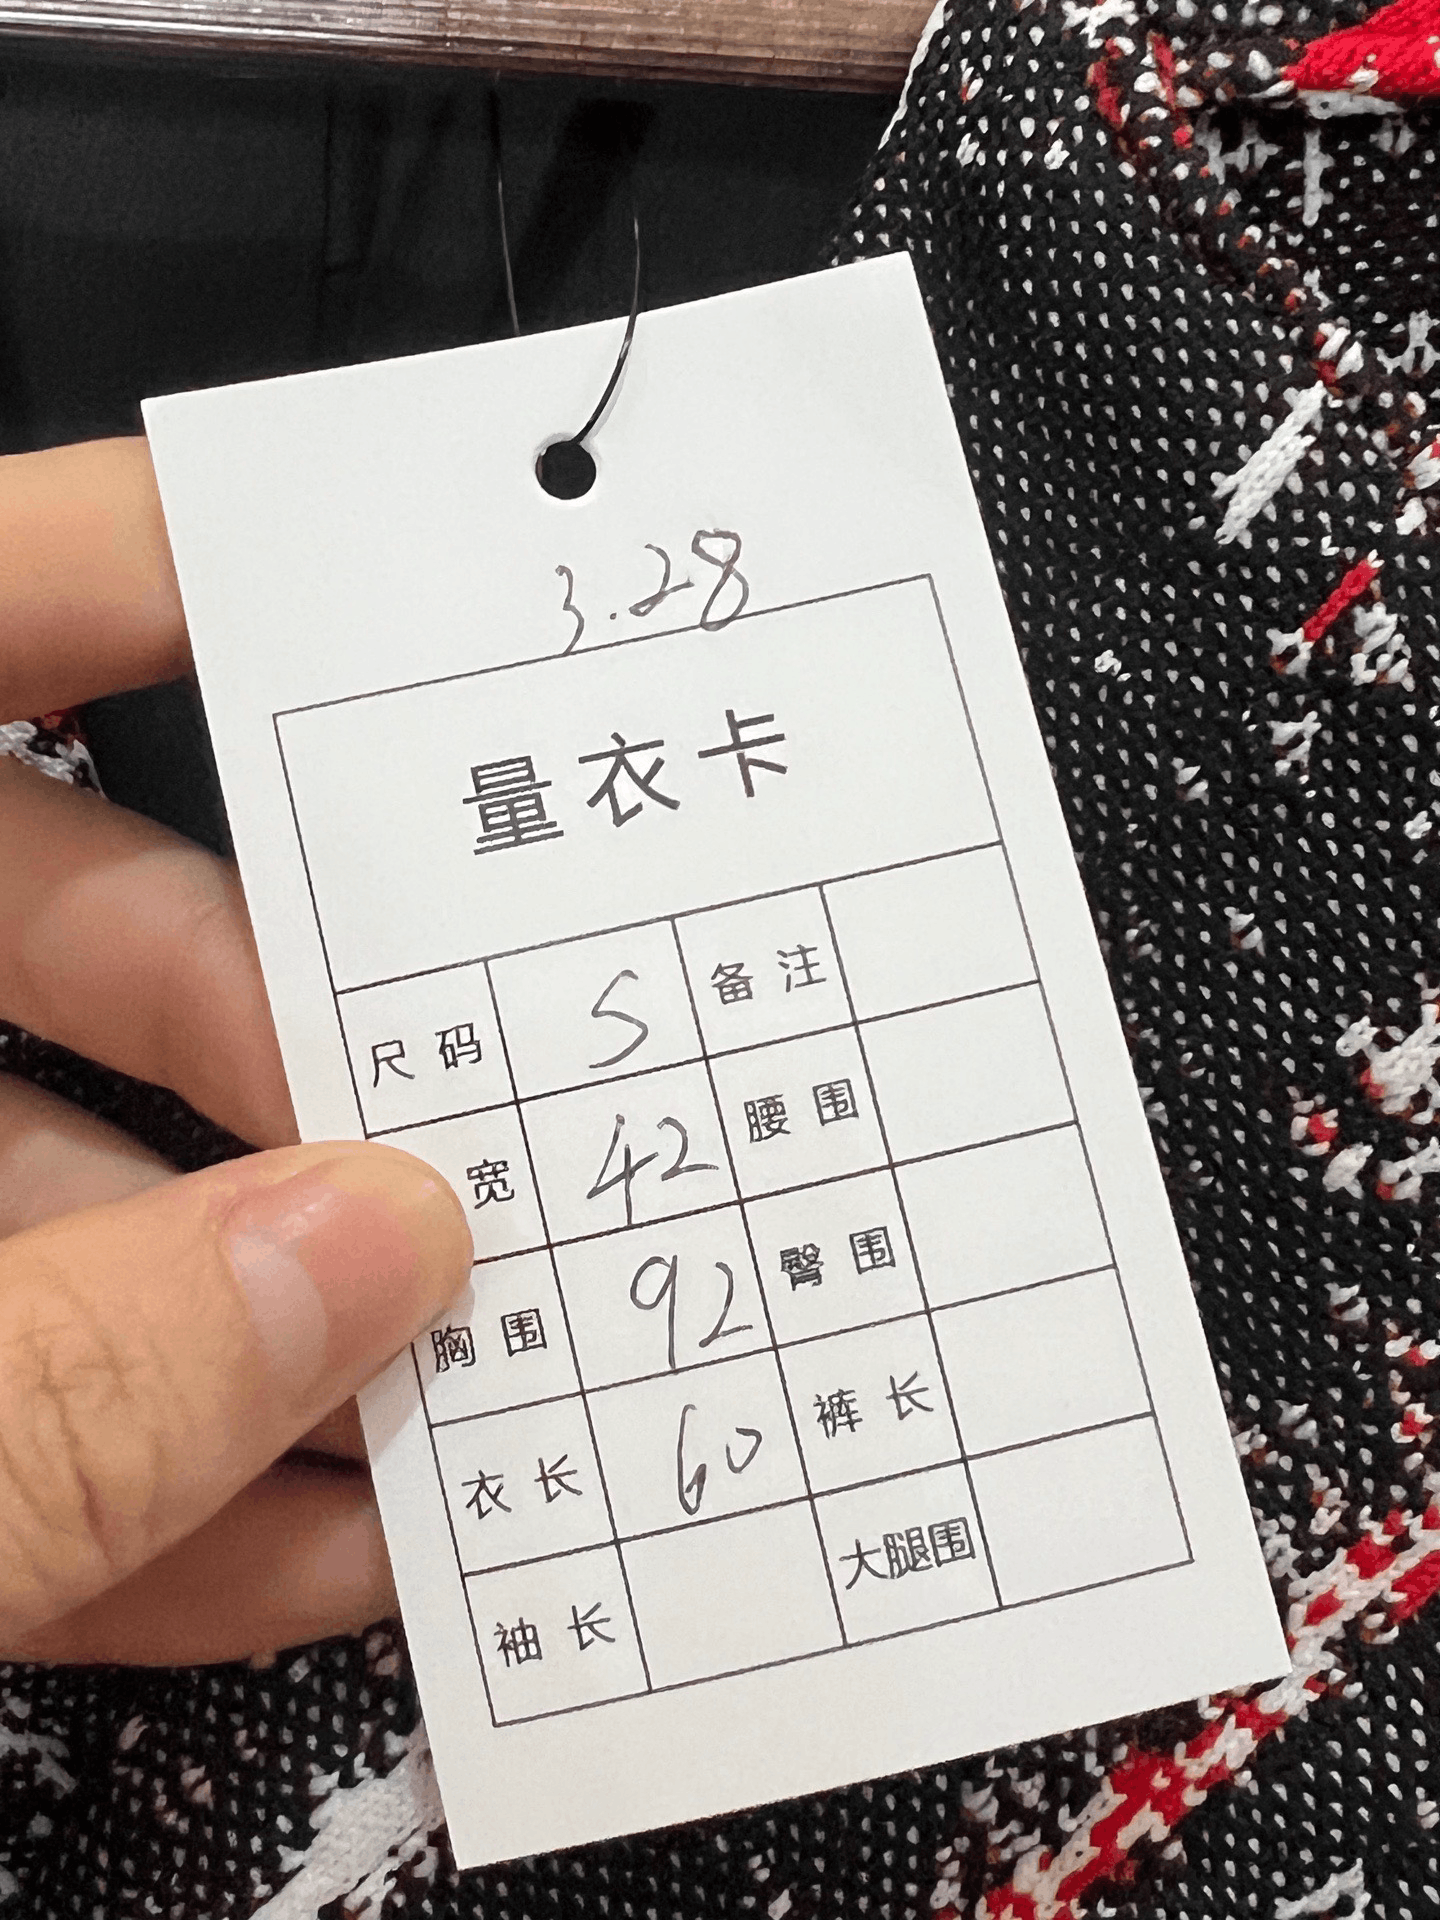 3.28
量衣卡
尺码 S 备注
宽 42 腰围
胸围 92 臀围
衣长 60 裤长
袖长 大腿围